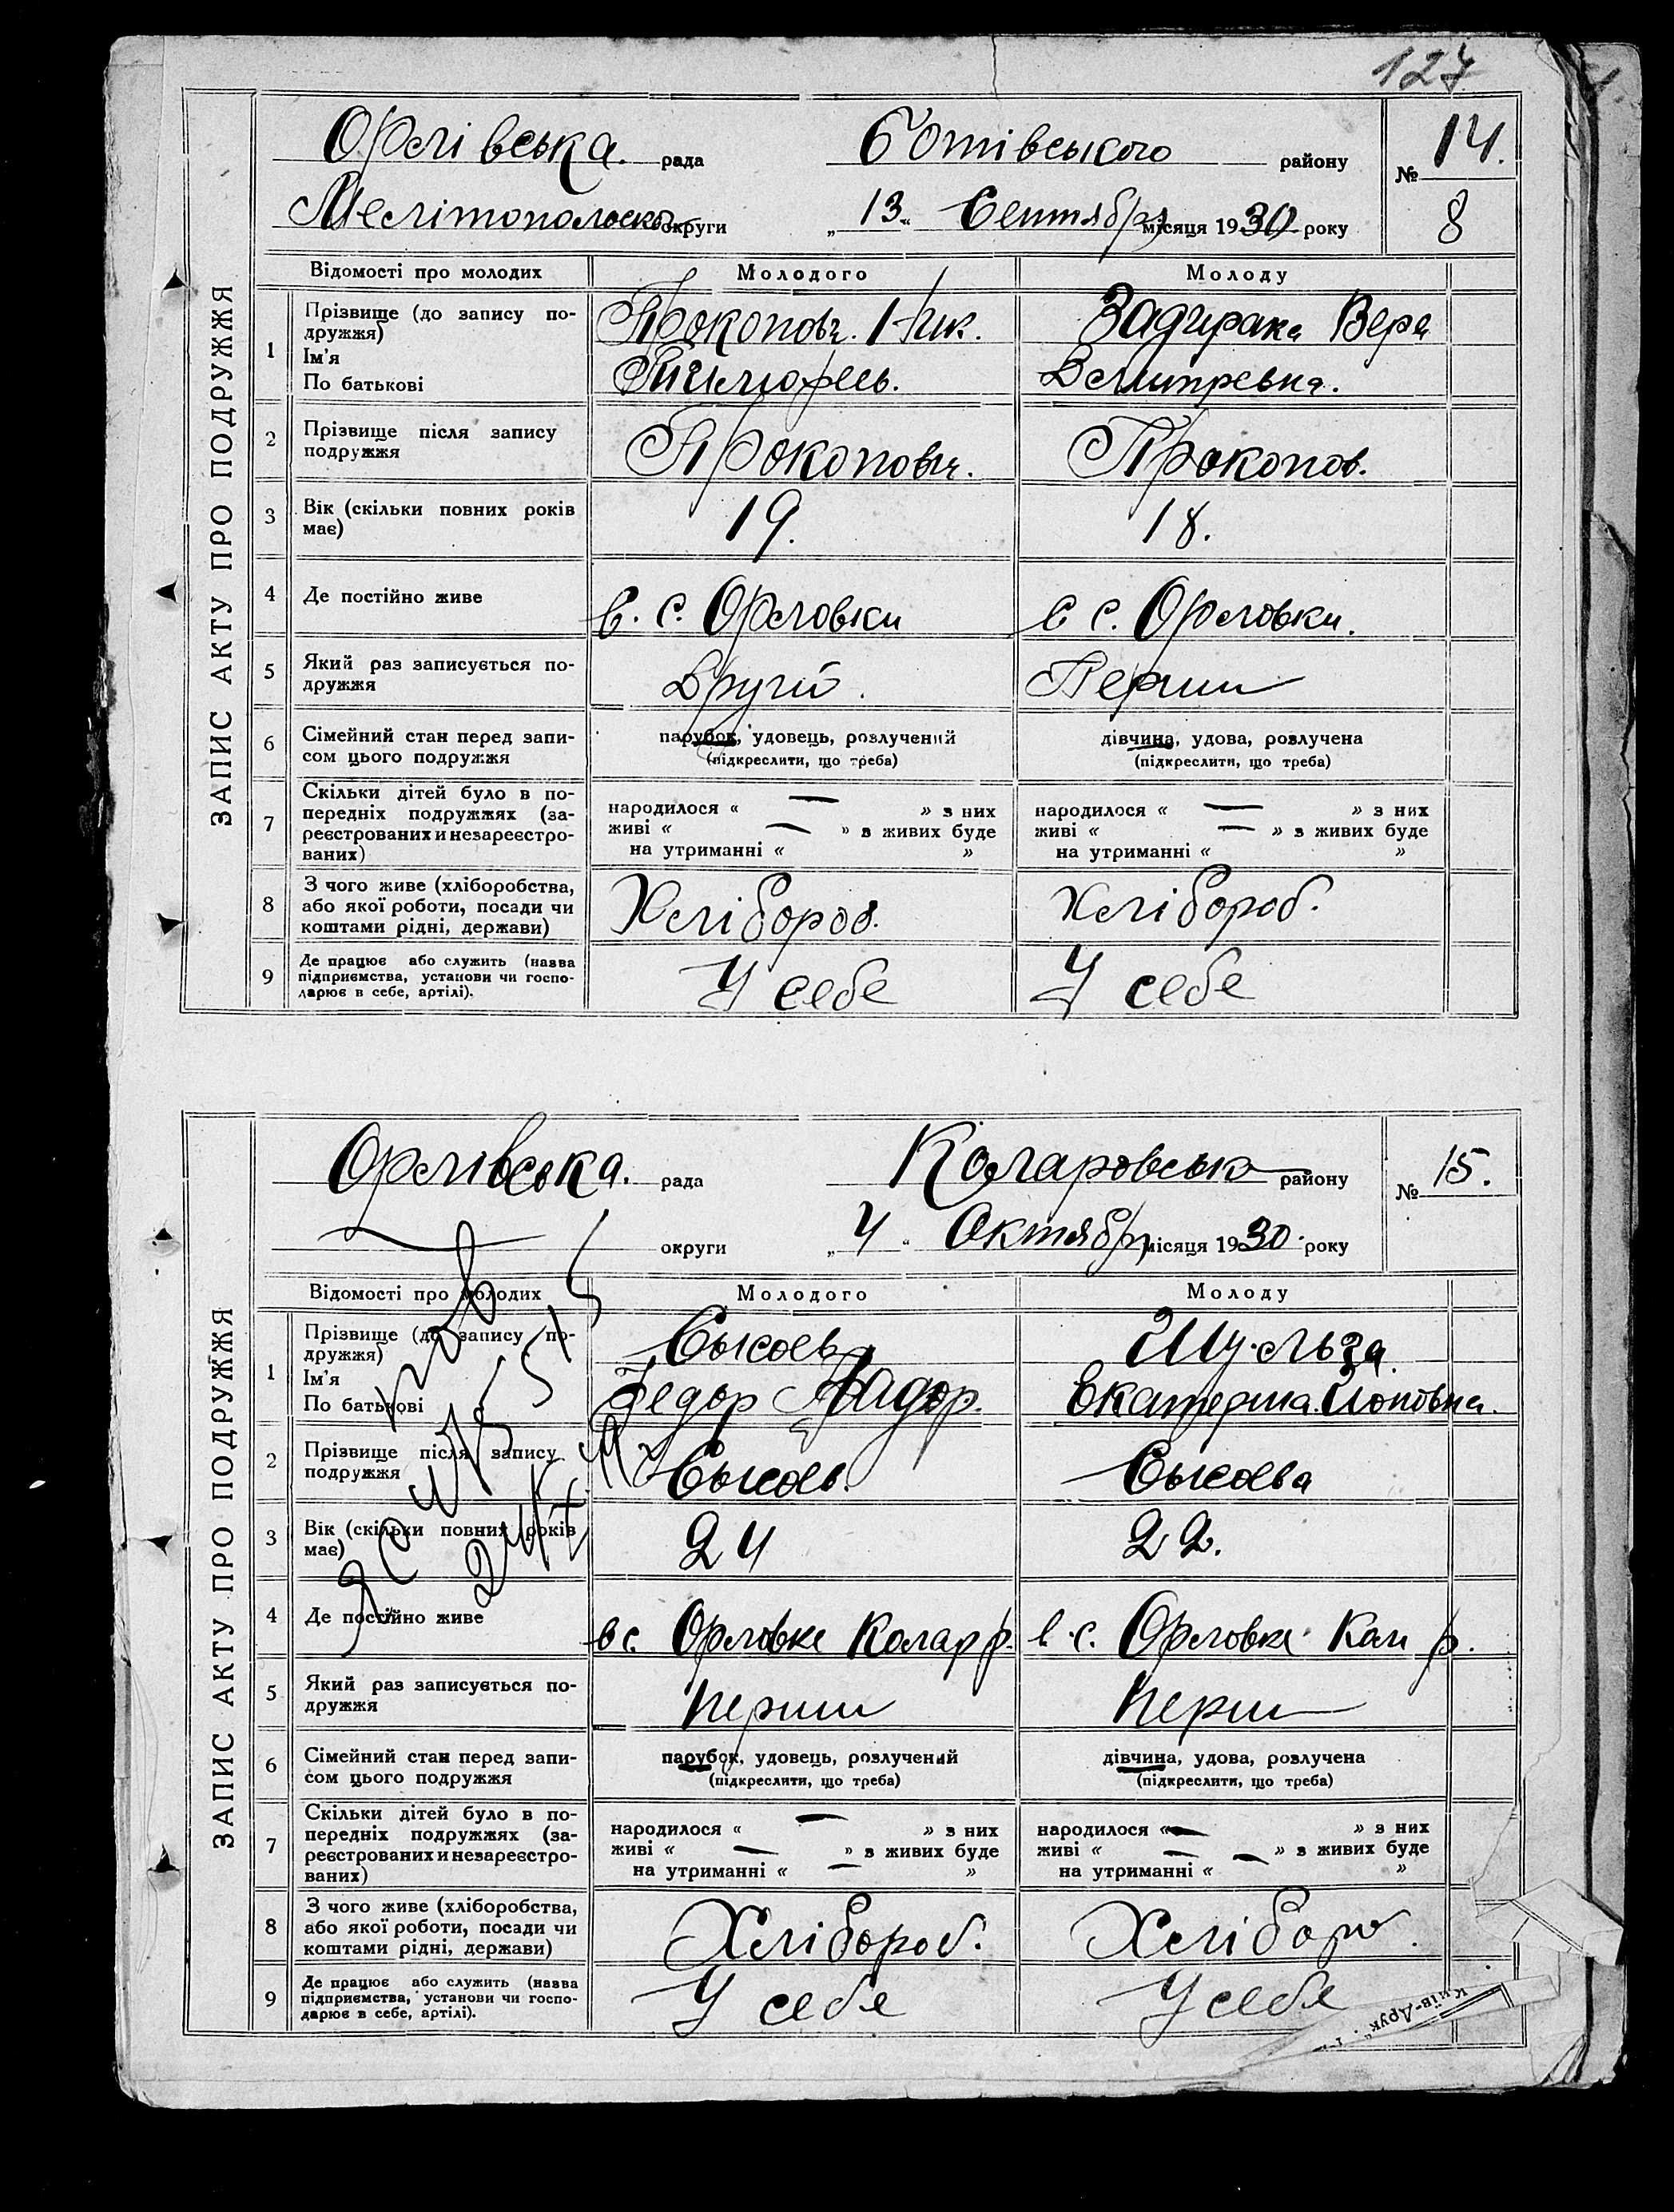 127
Орлівська. рада Ботівського району № 14.
Мелітопольско округи „13“ Сентября місяця 1930 року 8
ЗАПИС АКТУ ПРО ПОДРУЖЖЯ
Відомості про молодих Молодого Молоду
1 Прізвище (до запису по-
дружжя)
Ім’я
По батькові
Прокопович. Ник.
Тимофеев.
Задирака Вера
Дмитревна.
2 Прізвище після запису
подружжя
Прокопович. Прокопов.
3 Вік (скільки повних років
має)
19. 18.
4 Де постійно живе в. с. Орловки в с. Орловки.
5 Який раз записується по-
дружжя
Другий. Перший
6 Сімейний стан перед запи-
сом цього подружжя
парубок, удовець, розлучений
(підкреслити, що треба)
дівчина, удова, розлучена
(підкреслити, що треба)
7 Скільки дітей було в по-
передніх подружжях (за-
реєстрованих и незареєстро-
ваних)
народилося « — » з них
живі « — » з живих буде
на утриманні « »
народилося « — » з них
живі « — » з живих буде
на утриманні « »
8 З чого живе (хліборобства,
або якої роботи, посади чи
коштами рідні, держави)
Хлібороб. Хлібороб.
9 Де працює або служить (назва
підприємства, установи чи госпо-
дарює в себе, артілі).
У себе У себе
Орлівська. рада Коларовсько району № 15.
— округи „4“ Октября місяця 1930 року
ЗАПИС АКТУ ПРО ПОДРУЖЖЯ
Відомості про молодих Молодого Молоду
1 Прізвище (до запису по-
дружжя)
Ім’я
По батькові
Сысоев
Федор
Шульга
Екатерина
2 Прізвище після запису
подружжя
Сысоев. Сысоева
3 Вік (скільки повних років
має)
24 22.
4 Де постійно живе в с. Орловке Колар р. в. с. Орловке Кол р.
5 Який раз записується по-
дружжя
Перший Перш
6 Сімейний стан перед запи-
сом цього подружжя
парубок, удовець, розлучений
(підкреслити, що треба)
дівчина, удова, розлучена
(підкреслити, що треба)
7 Скільки дітей було в по-
передніх подружжях (за-
реєстрованих и незареєстро-
ваних)
народилося « — » з них
живі « — » з живих буде
на утриманні « — »
народилося « — » з них
живі « — — » з живих буде
на утриманні « »
8 З чого живе (хліборобства,
або якої роботи, посади чи
коштами рідні, держави)
Хлібороб. Хлібороб.
9 Де працює або служить (назва
підприємства, установи чи госпо-
дарює в себе, артілі).
У себе У себе
Київ-Друк“